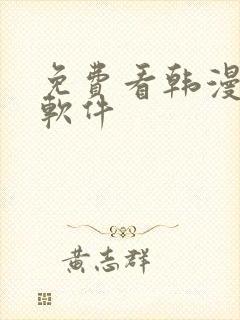 免費看韩漫
軟件
黃志群